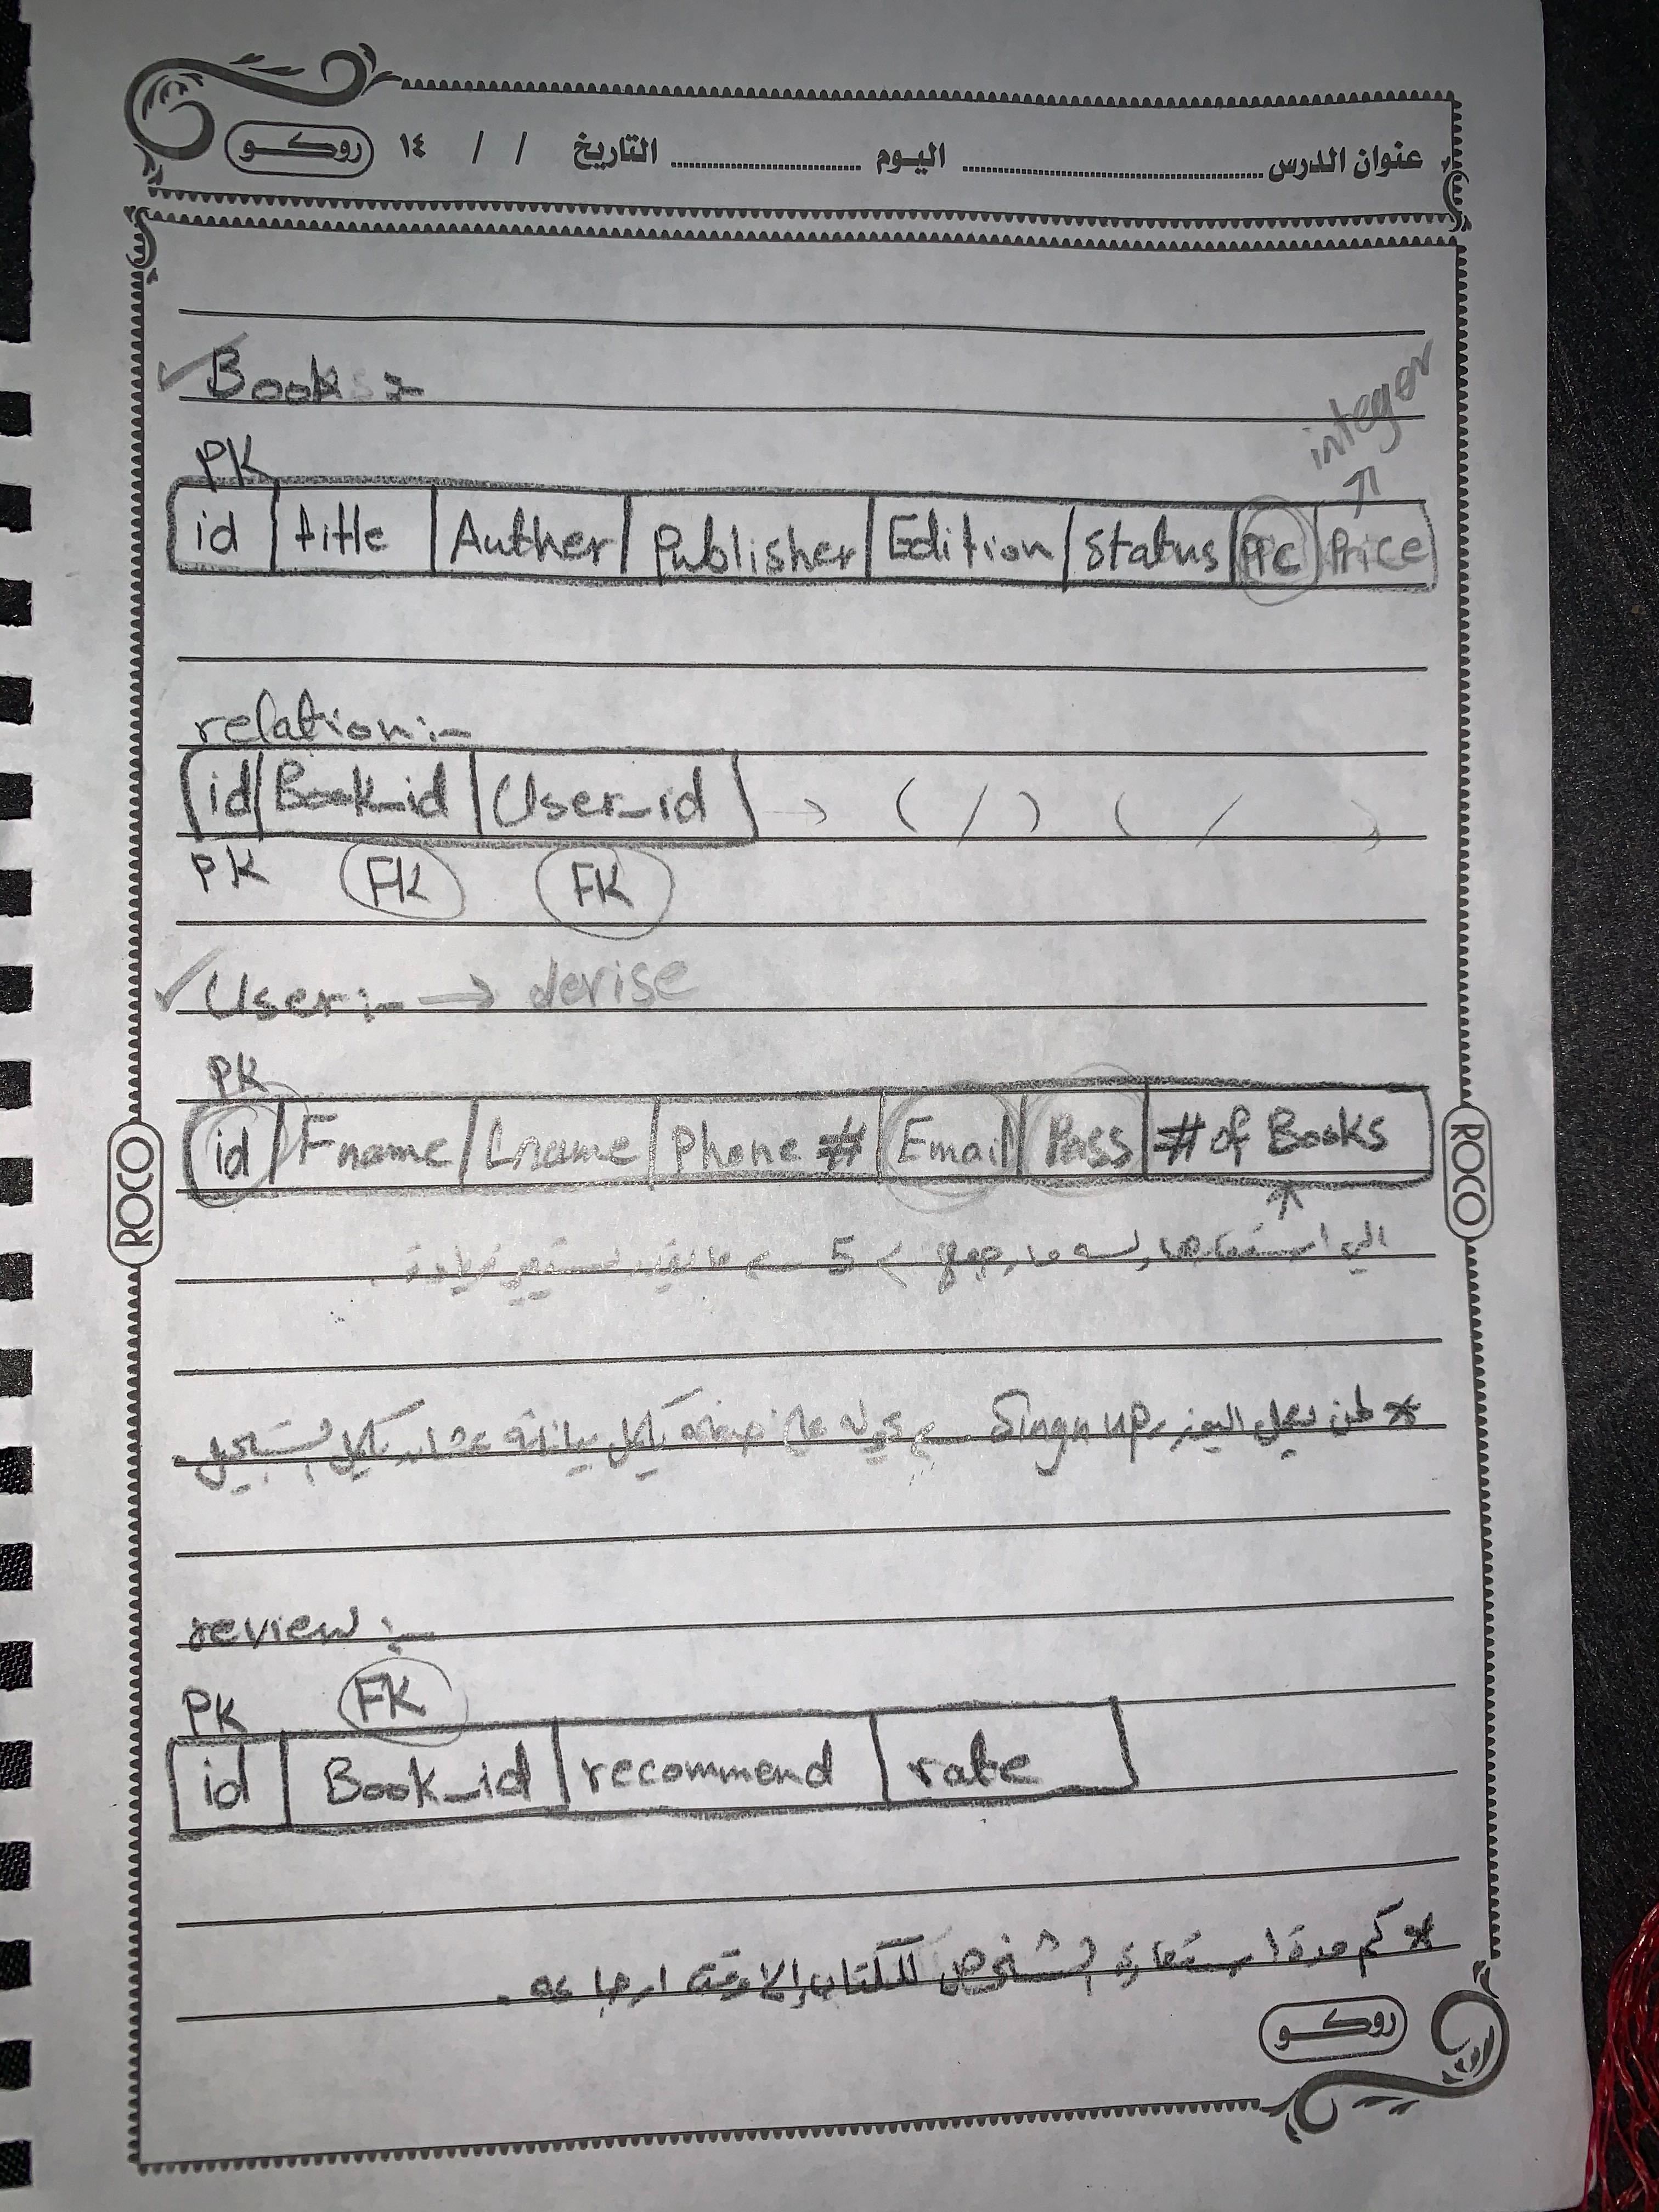 عنوان الدرس اليوم التاريخ / / ١٤ روكو
Books :-
integer
PK
id title Auther Publisher Edition Status Pic Price
relation:-
id Book_id User_id → ( / ) ( / )
PK FK FK
User:- → devise
PK
id Fname Lname Phone # Email Pass # of Books
الي استعارها ولسه ما رجعها > 5 ما يقدر يستعير زيادة .
ROCO
ROCO
* لمن يعمل اليوزر Singn up يحوله على صفحة يكمل بياناته عشان يكمل تسجيل .
review :-
PK FK
id Book_id recommend rate
* كم مدة استعارة الشخص للكتاب إلى وقت ارجاعه .
روكو